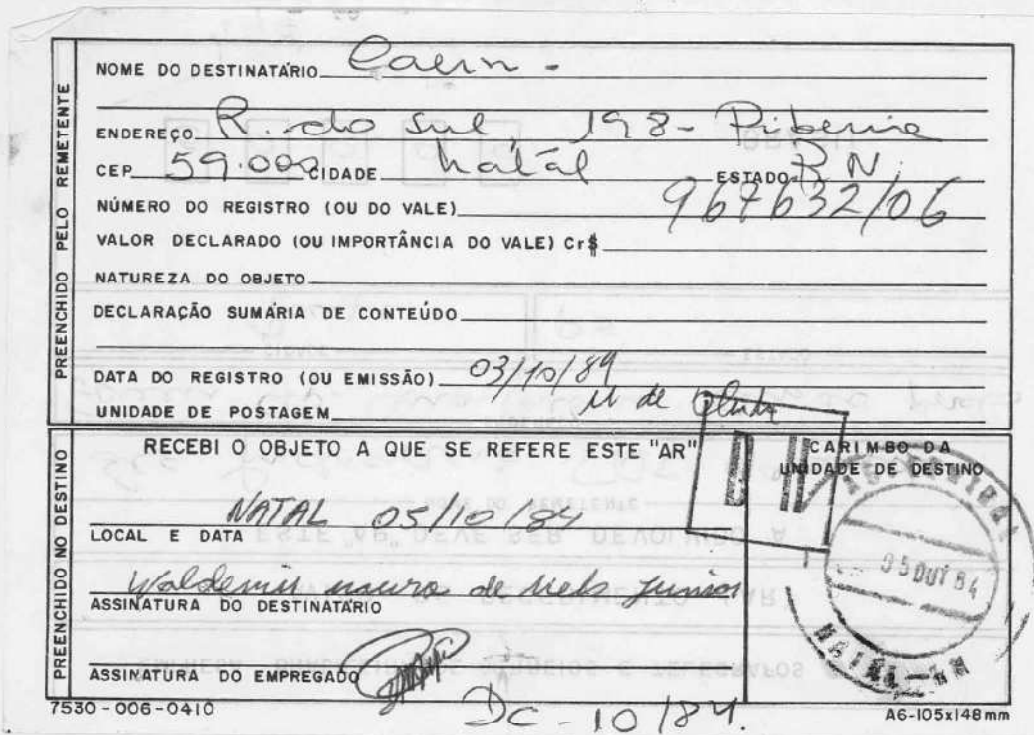 NOME DO DESTINATÁRIO Caern -
ENDEREÇO R. do Sul, 198 - Ribeira
CEP 59.000 CIDADE Natal ESTADO RN.
NÚMERO DO REGISTRO (OU DO VALE) 967632/06
VALOR DECLARADO (OU IMPORTÂNCIA DO VALE) Cr$
NATUREZA DO OBJETO
DECLARAÇÃO SUMÁRIA DE CONTEÚDO
DATA DO REGISTRO (OU EMISSÃO) 03/10/84
UNIDADE DE POSTAGEM M de
PREENCHIDO PELO REMETENTE
RECEBI O OBJETO A QUE SE REFERE ESTE "AR"
CARIMBO DA
UNIDADE DE DESTINO
NATAL 05/10/84
LOCAL E DATA
Waldemir moura de Melo Junior
ASSINATURA DO DESTINATÁRIO
ASSINATURA DO EMPREGADO
PREENCHIDO NO DESTINO
05 OUT 84
NATAL - RN
7530-006-0410
DC - 10/84.
A6-105x148mm